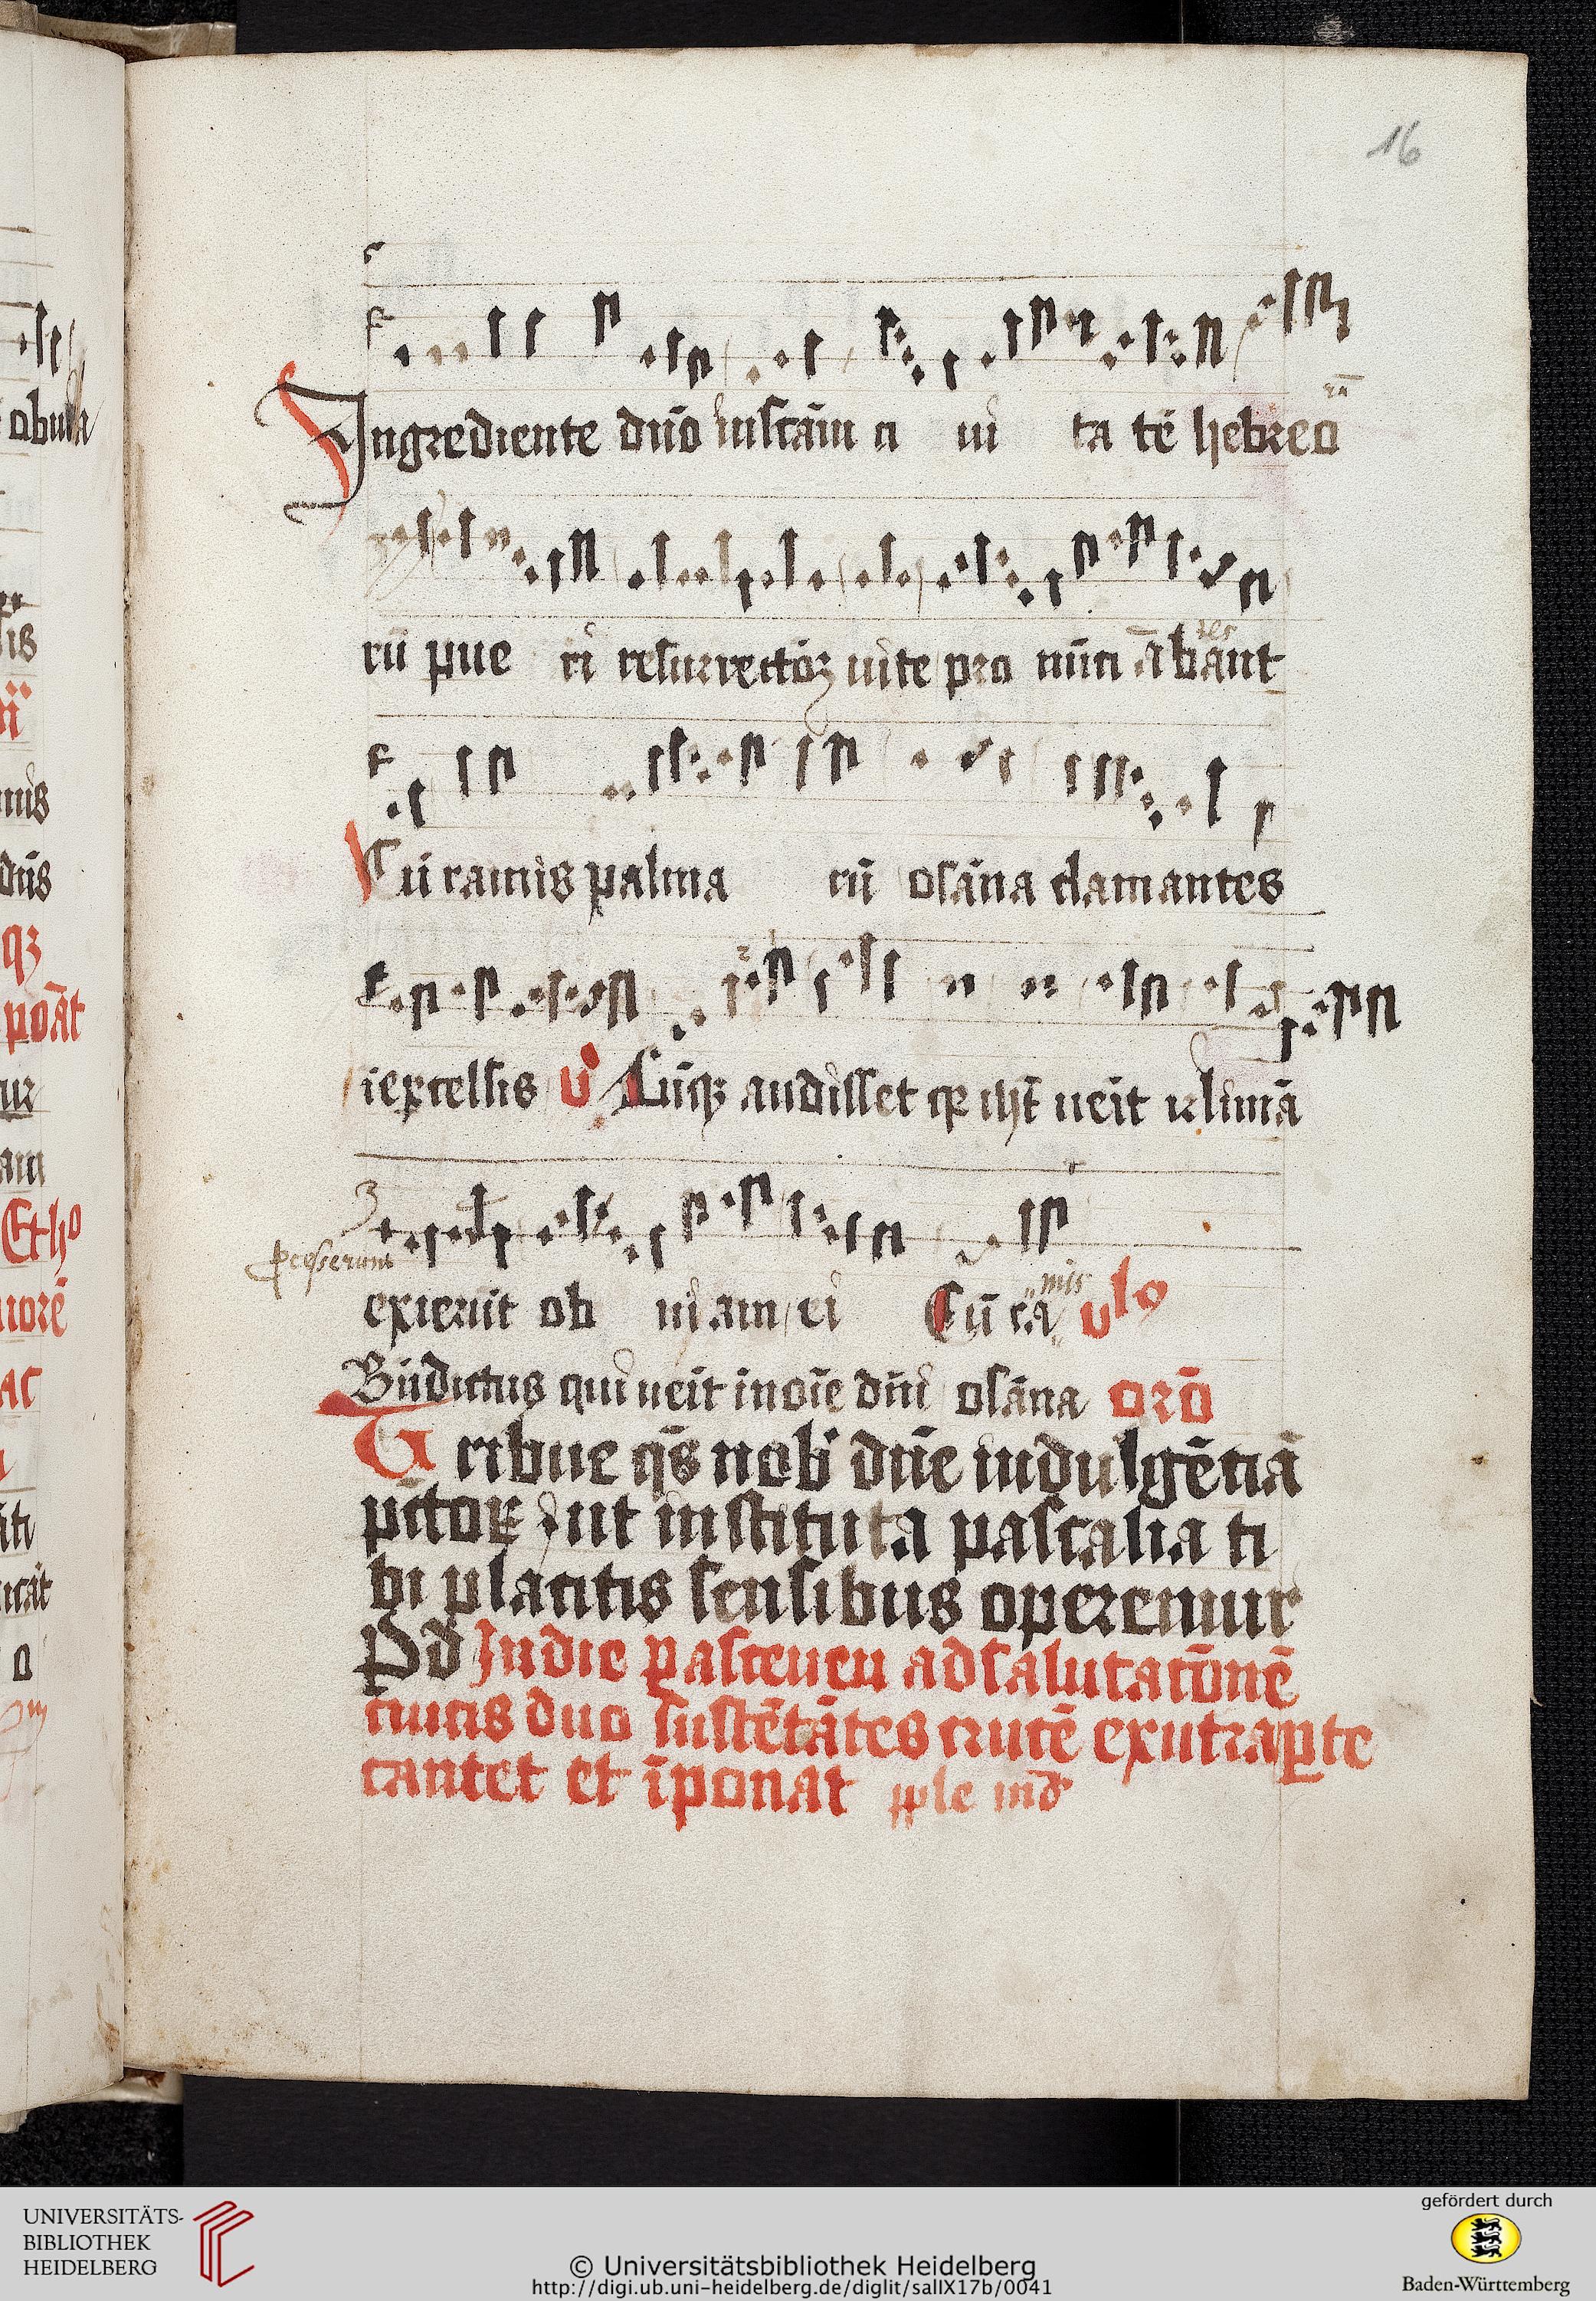 16
rū
Ingrediente dn̄o insc̄am ci ui ta tē hebreo
rū pue ri resurrectōꝫ uite pro nūci ābant
tes
Cū ramis palma rū osāna clamantes
i excelsis v̊ Cūqꝫ audisset qꝛ ih̄c ueīt ierlimā
p̄cesserunt
exierūt ob uiam ei Cū ra vlo
mis
Bn̄dictus qui ueīt i noīe dn̄i osāna orō
Tribue qs̄ nob̄ dn̄e indulgētiā
pctoꝝ ut instituta pascalia ti
bi placitis sensibus operemur
P d In die pasceuen ad salutatōnē
crucis duo sustētātes crucē ex utraꝑte
cantet et īponat
abula
is
mis
dn̄s
qꝫ
ponāt
ur
am
Et ho
morē
ac
iti
icāt
o
UNIVERSITÄTS-
BIBLIOTHEK
HEIDELBERG
© Universitätsbibliothek Heidelberg
http://digi.ub.uni-heidelberg.de/diglit/salIX17b/0041
gefördert durch
Baden-Württemberg